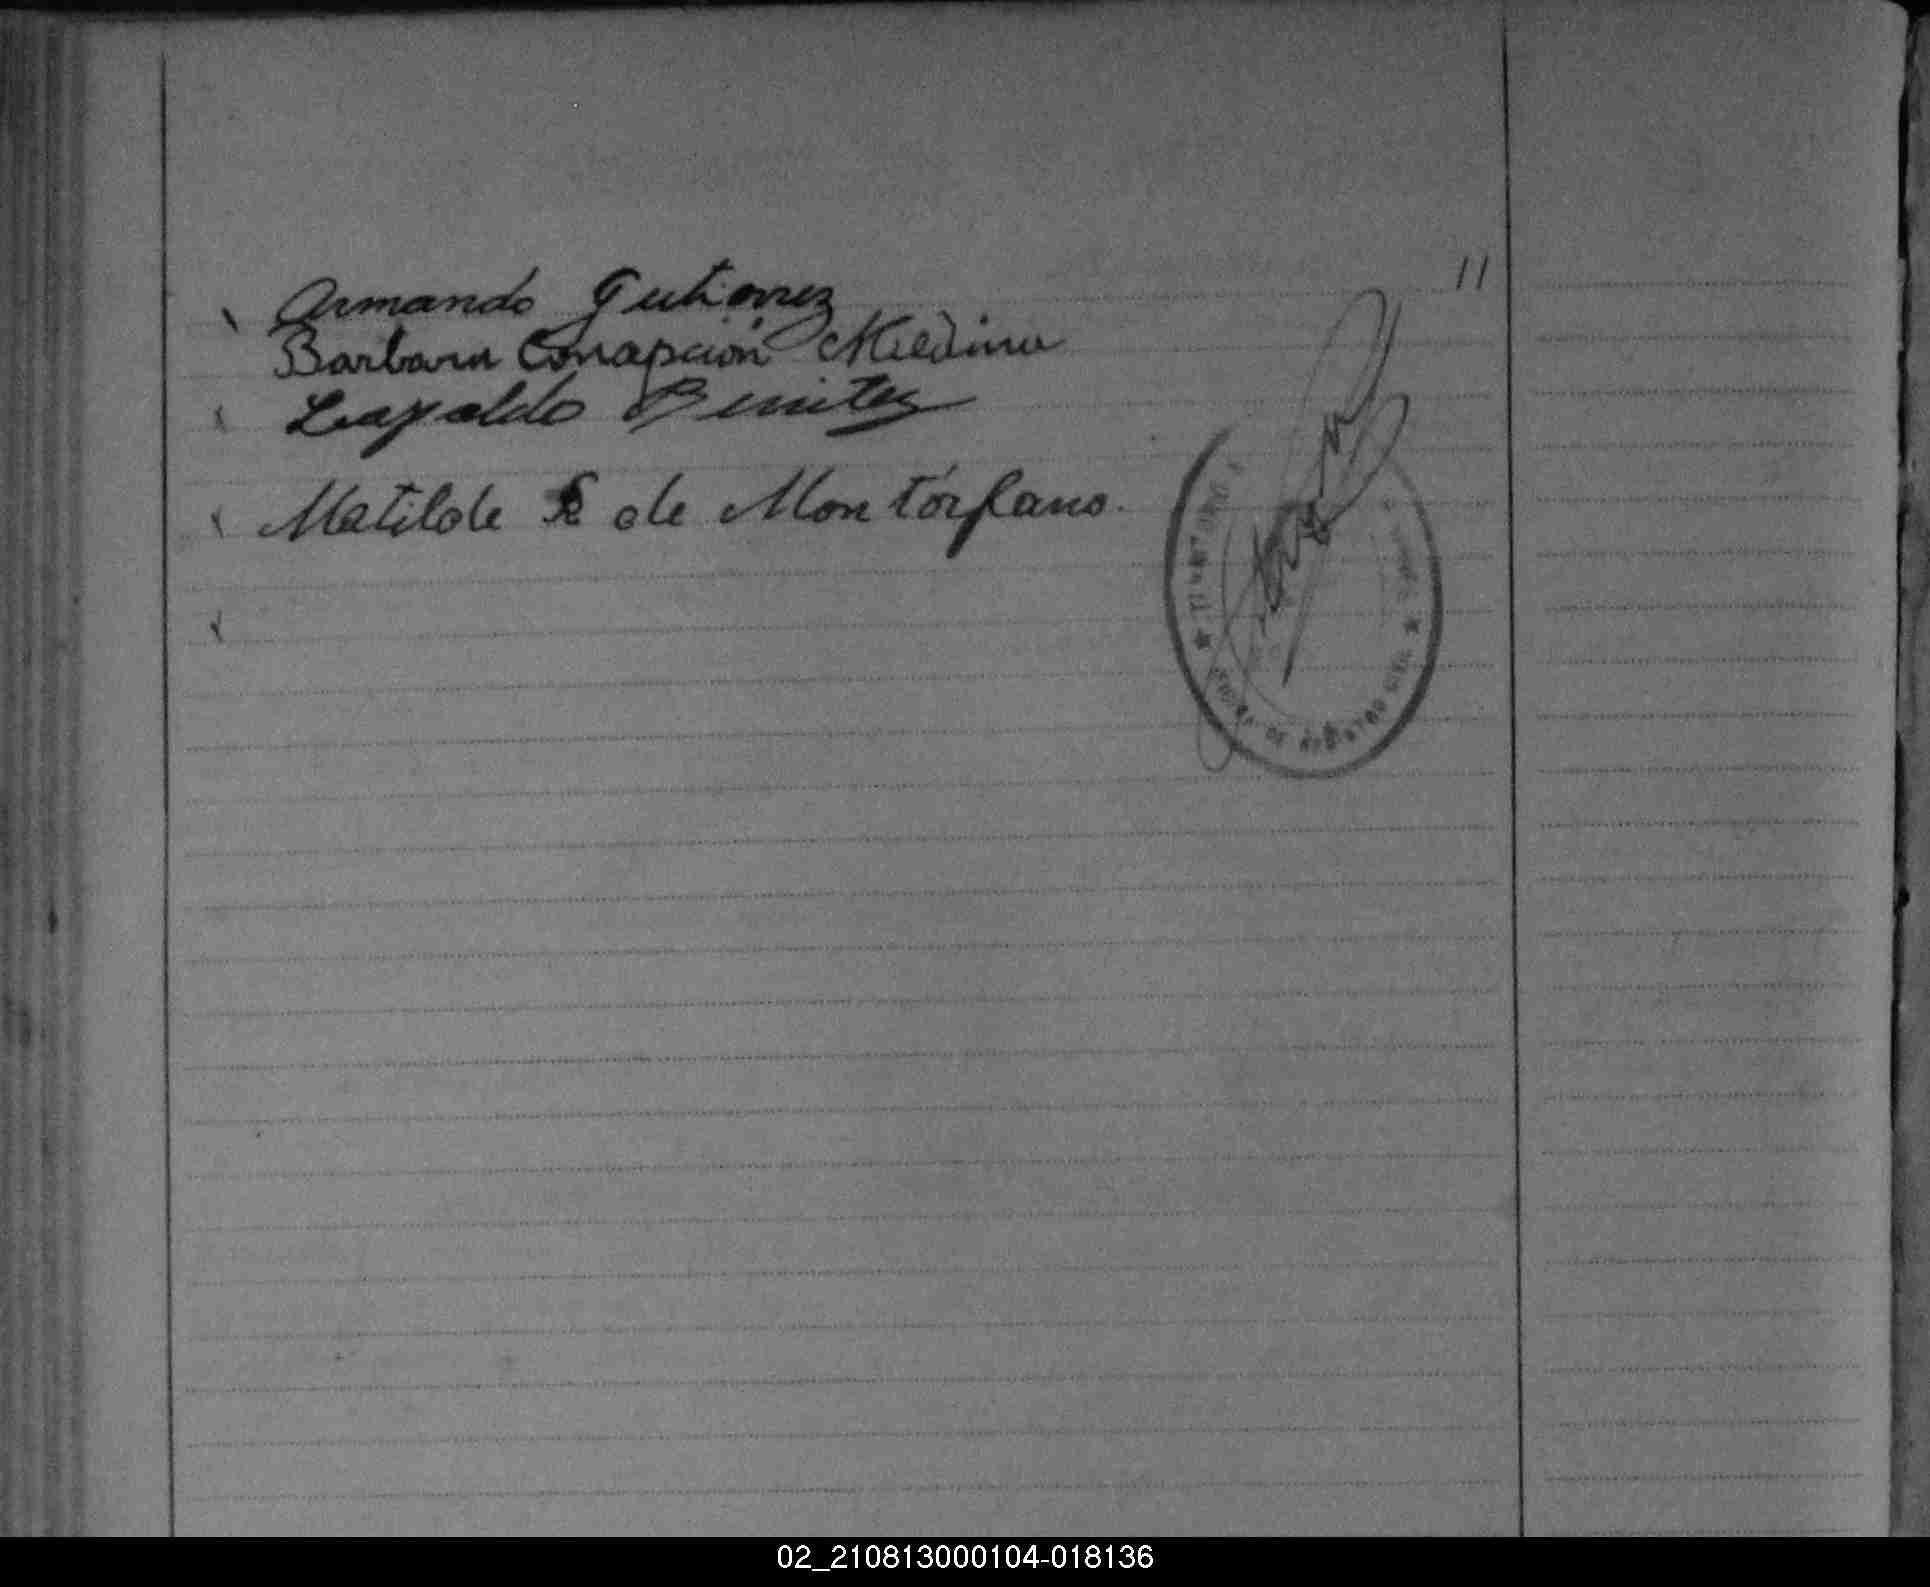 11
Armando Gutierrez
Barbara Conapción Medina
Leopoldo Benitez
Matilde de Montórfano.
DE REGISTRO CIVIL
02_210813000104-018136